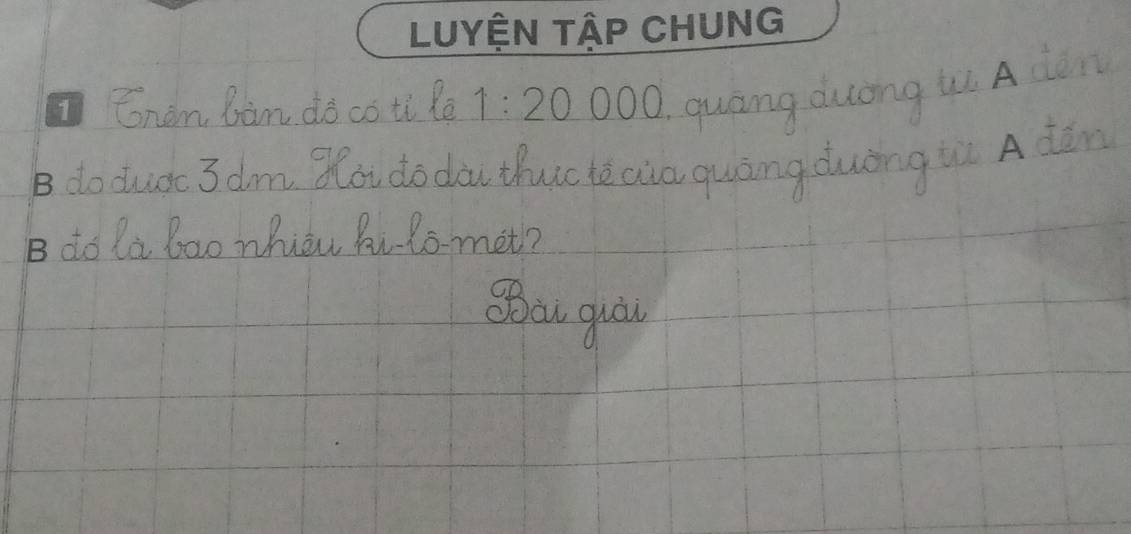 LUYỆN TẬP CHUNG
1 Trên bản đồ có tỉ lệ 1 : 20 000, quãng đường từ A đến
B đo được 3 dm. Hỏi độ dài thực tế của quãng đường từ A đến
B đó là bao nhiêu ki-lô-mét?
Bài giải